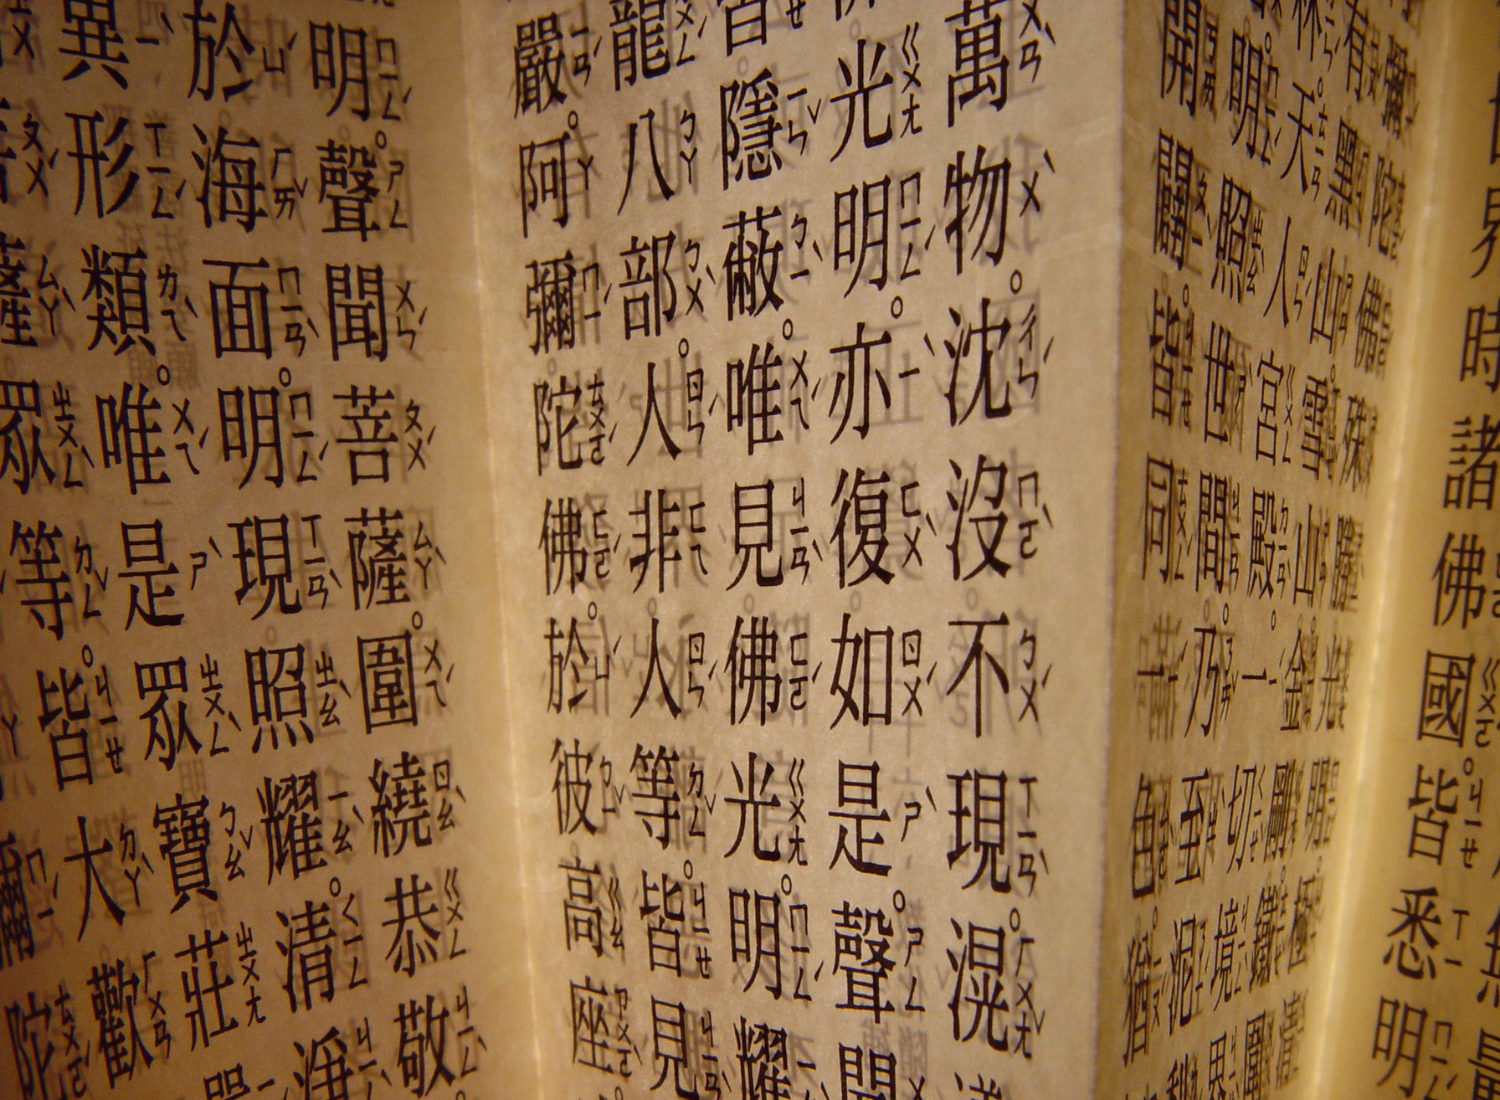 無量
世界時諸佛國。皆悉明
彌陀佛殊勝光明。極清
有黑山。雪山。金剛。鐵圍
林。天人宮殿。一切境界
明照世間。乃至泥犁
開闢。皆同一色。猶
萬物。沈沒不現。滉漾
佛光明。亦復如是。聲聞
皆隱蔽。唯見佛光。明耀
龍八部。人非人等。皆見
嚴。阿彌陀佛。於彼高座
明。聲聞菩薩。圍繞恭敬
於海面。明現照耀。清淨
異形類。唯是眾寶莊嚴
菩薩眾等。皆大歡
彌陀